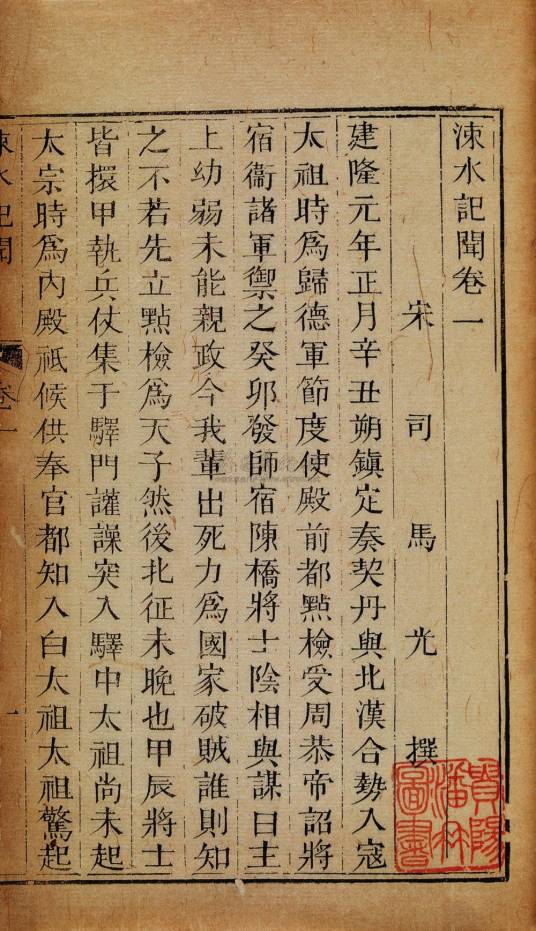 涑水記聞卷一
宋司馬光撰
建隆元年正月辛丑朔鎭定奏契丹與北漢合勢入寇
太祖時爲歸德軍節度使殿前都點檢受周恭帝詔將
宿衞諸軍禦之癸卯發師宿陳橋將士陰相與謀曰主
上幼弱未能親政今我輩出死力爲國家破賊誰則知
之不若先立點檢爲天子然後北征未晚也甲辰將士
皆擐甲執兵仗集于驛門讙譟突入驛中太祖尚未起
太宗時爲內殿祗候供奉官都知入白太祖太祖驚起
涑水記聞 卷一 一